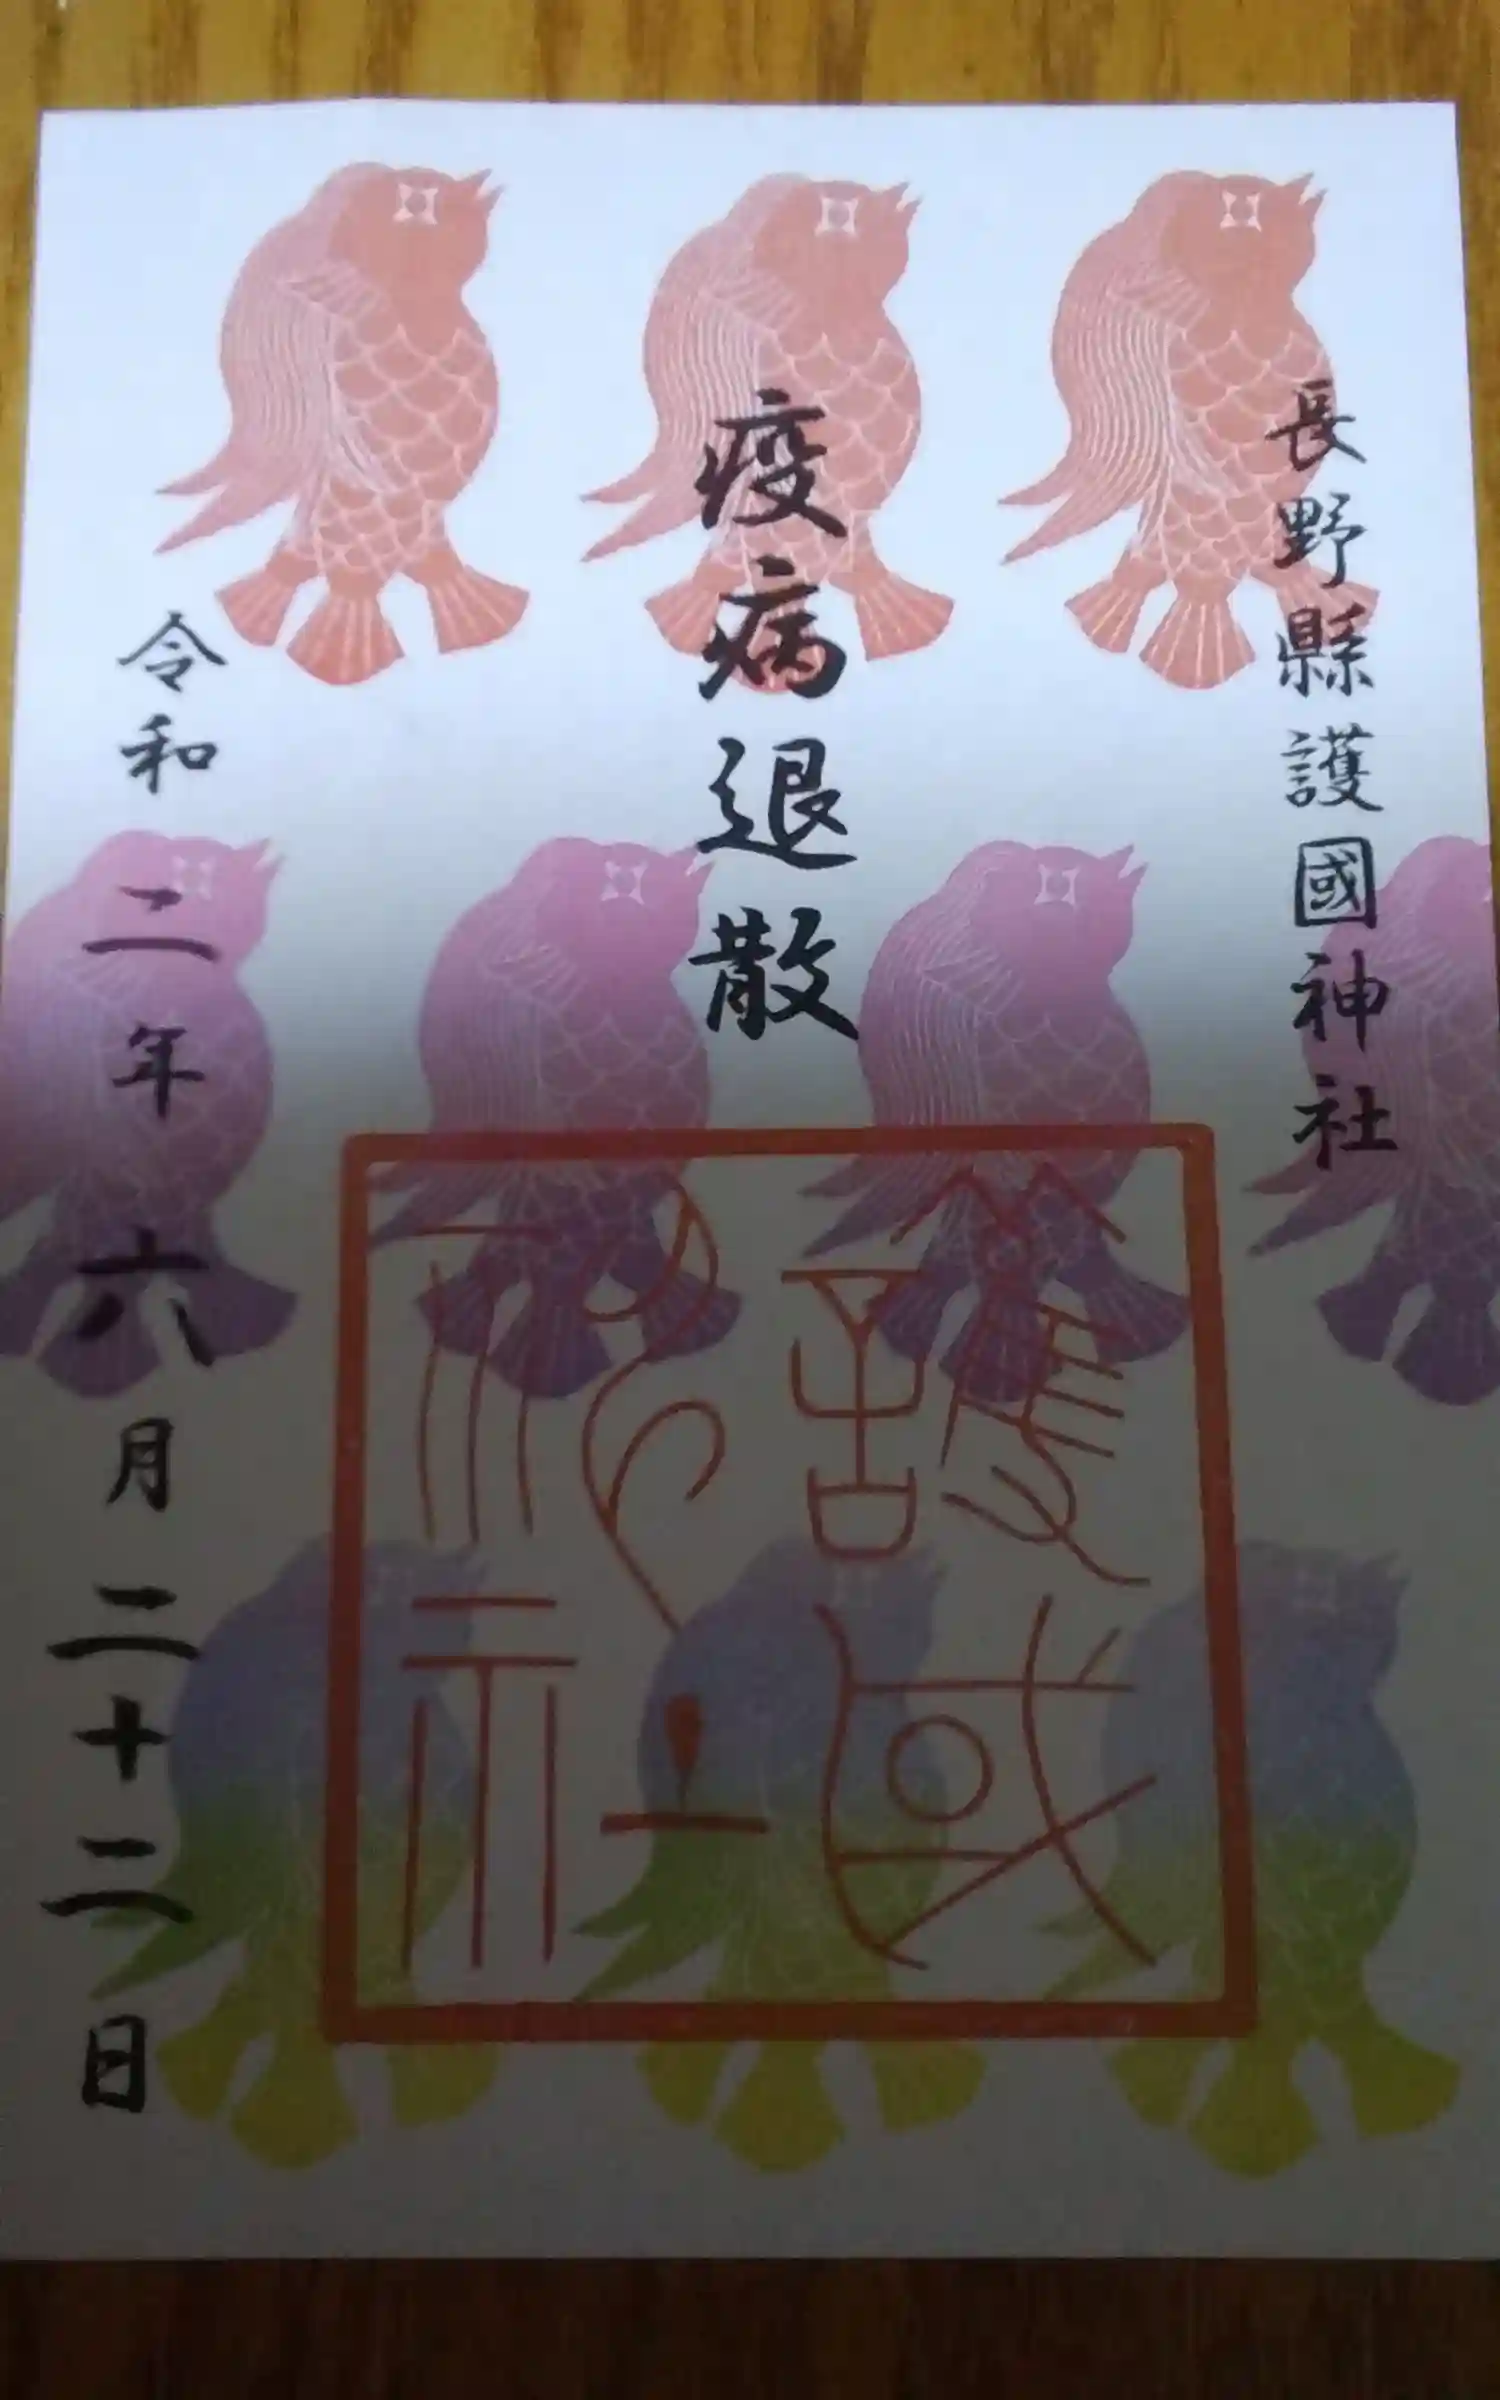 長野縣護國神社
疫病退散
護国神社
令和二年六月二十二日